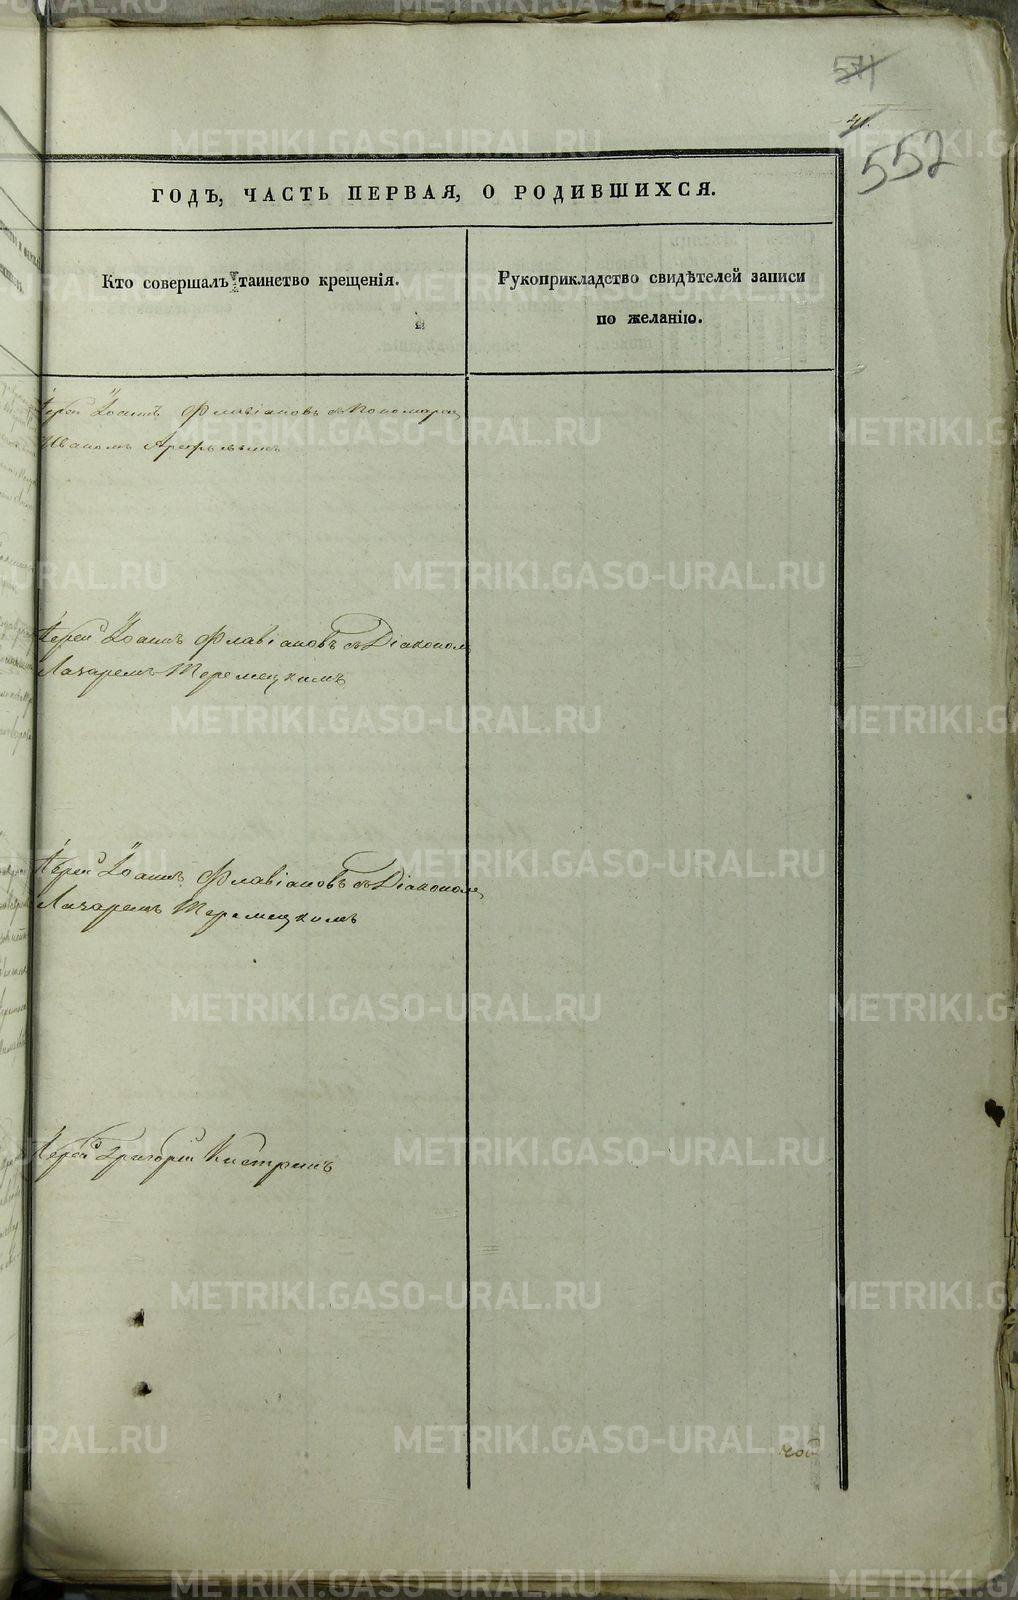 541
41.
552
ГОДЪ, ЧАСТЬ ПЕРВАЯ, О РОДИВШИХСЯ.
Кто совершалъ таинство крещенія.
Рукоприкладство свидѣтелей записи
по желанію.
Іерей Іоаннъ Флавіановъ съ Пономаремъ
Иваномъ Арефьевымъ
Іерей Іоаннъ Флавіановъ съ Діакономъ
Лазаремъ Теремецкимъ
Іерей Іоаннъ Флавіановъ съ Діакономъ
Лазаремъ Теремецкимъ
Іерей Григорій Кистринъ
METRIKI.GASO-URAL.RU